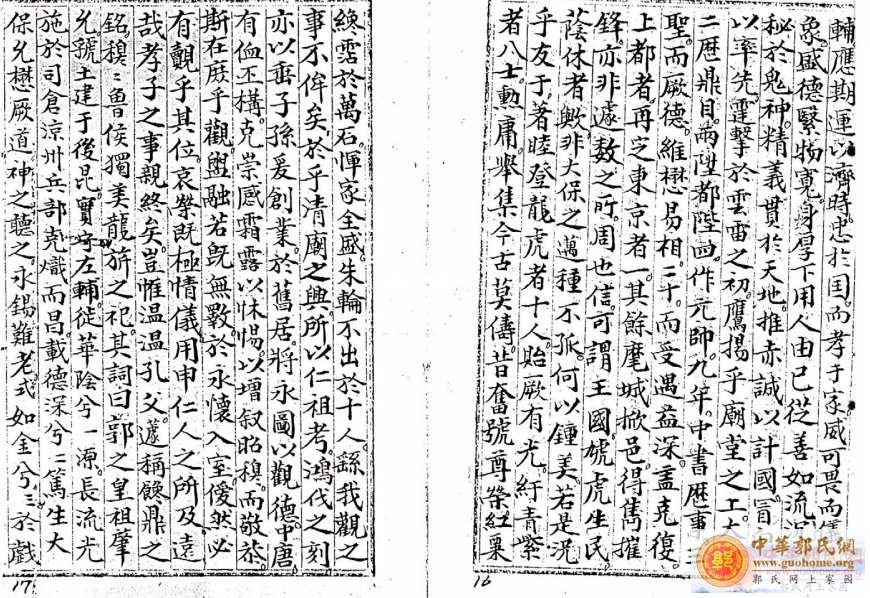 輔應期運以濟時忠於国而孝于家威可畏而
象盛德緊物寬身厚下用人由已從善如流
秘於鬼神精義貫於天地推赤誠以計國冒
以率先霆擊於雲雷之初鷹揚乎廟堂之上
二歷鼎目兩陞都陛四作元師九年中書歷事
聖而厥德維懋易相二十而受遇益深盖克復
上都者再定東京者一其餘麾城掀邑得雋摧
鋒亦非遽数之所周也信可謂王國虓虎坐民
蔭休者歟非大保之邁種不孤何以鍾美若是况
乎友于著睦登龍虎者十人貽厥有光紆青紫
者八士勳庸舉集今古莫儔昔奮號尊榮紅粟
16
綠霑於萬石惲家全盛朱輪不出於十人繇我觀之
事不侔矣於乎清廟之興所以仁祖考鴻伐之刻
亦以垂子孫爰創業於舊居將永圖以觀德中唐
有侐丕構克崇感霜露以怵惕以增叙昭穆而敬恭
斯在庶乎觀盥融若既無斁於永懷入室僾然必
有覿乎其位哀榮既極情儀用申仁人之所及遠
哉孝子之事親終矣豈惟温温孔父遽稱饙鼎之
銘穆〻魯侯獨美龍旂之祀其詞曰郭之皇祖肇
允號土建于後昆實守左輔徙華陰兮一源長流光
施於司倉涼州兵部克熾而昌載德深兮二篤生大
保允懋厥道神之聽之永錫難老式如金兮三於戲
17
中華郭氏網
www.guohome.org
郭氏网上家園